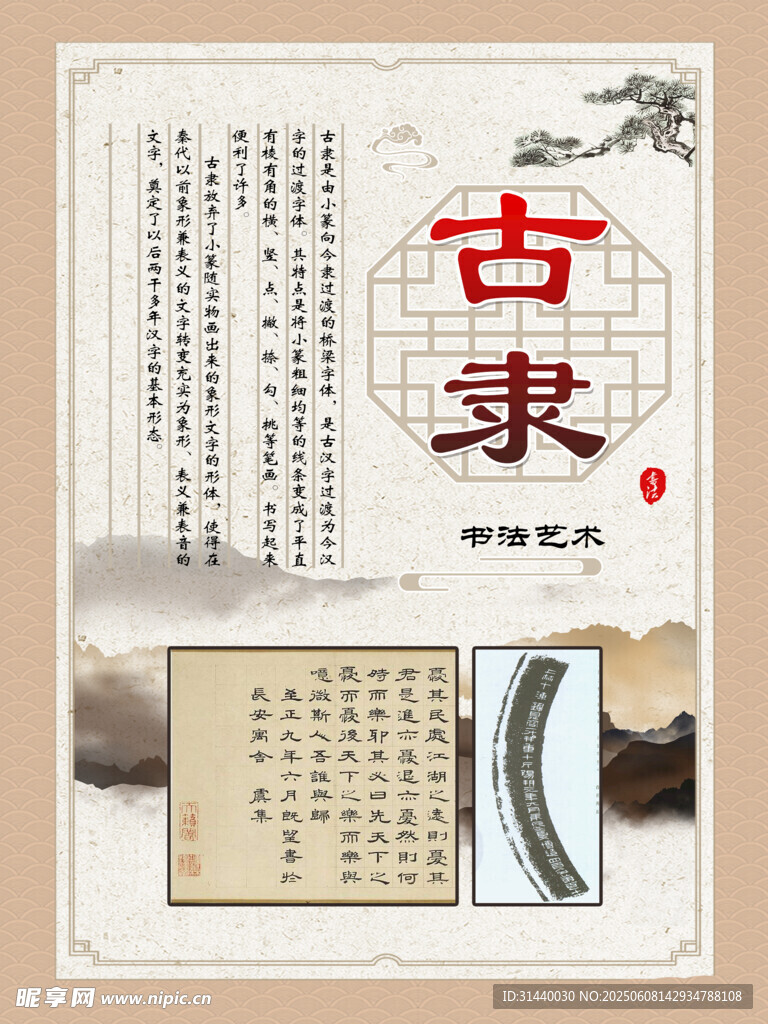 古隶
书法
书法艺术
古隶是由小篆向今隶过渡的桥梁字体，是古汉字过渡为今汉
字的过渡字体。其特点是将小篆粗细均等的线条变成了平直
有棱有角的横、竖、点、撇、捺、勾、挑等笔画。书写起来
便利了许多。
古隶放弃了小篆随实物画出来的象形文字的形体，使得在
秦代以前象形兼表义的文字转变充实为象形、表义兼表音的
文字，奠定了以后两千多年汉字的基本形态。
憂其民處江湖之遠則憂其
君是進亦憂退亦憂然則何
時而樂耶其必曰先天下之
憂而憂後天下之樂而樂與
噫微斯人吾誰與歸
至正九年六月既望書於
長安寓舍 虞集
昵享网 www.nipic.cn
ID:31440030 NO:20250608142934788108